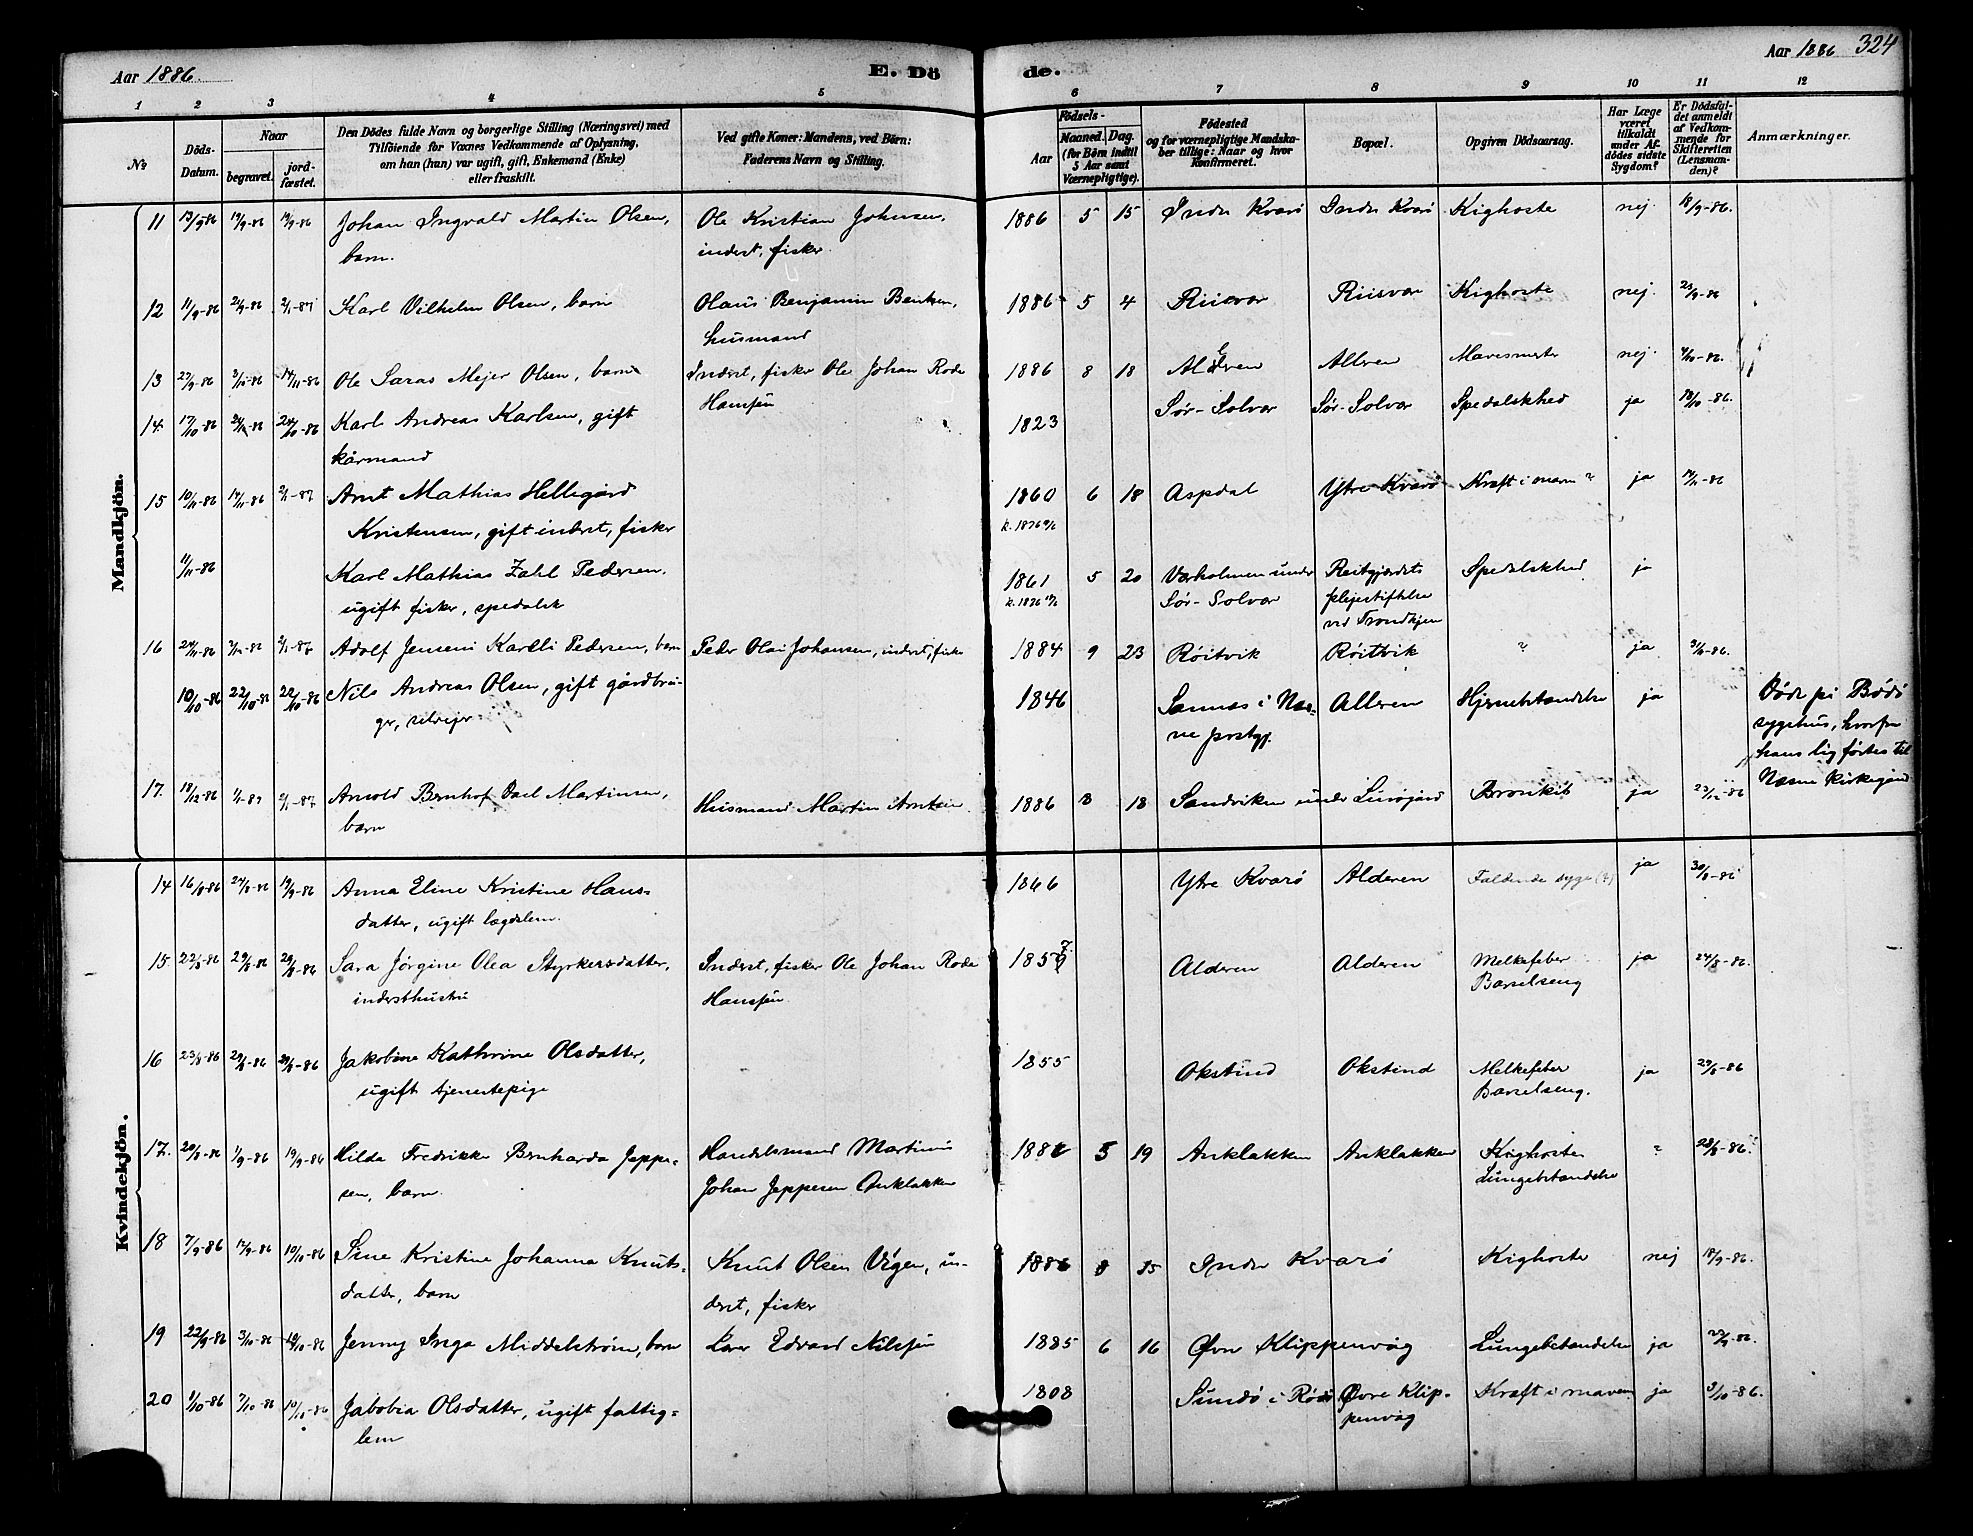 Aar 1886.
E. Dö
de.
Aar 1886 324
1 2 3 4 5 6 7 8 9 10 11 12
No
Döds-Datum.
Naar
begravet.
jordfæstet.
Den Dödes fulde Navn og borgerlige Stilling (Næringsvei) med
Tilföiende for Voxnes Vedkommende af Oplysning,
om han (hun) var ugift, gift, Enkemand (Enke)
eller fraskilt.
Ved gifte Koner: Mandens, ved Börn:
Faderens Navn og Stilling.
Födsels-
Aar
Maaned. Dag.
(for Börn indtil
5 Aar samt
Værnepligtige).
Födested
og for værnepligtige Mandskaber
tillige: Naar og hvor
konfirmeret.
Bopæl.
Opgiven Dödsaarsag.
Har Læge
været
tilkaldt
under Afdödes
sidste
Sygdom?
Er Dödsfaldet
anmeldt
af Vedkommende
for
Skifteretten
(Lensmanden)?
Anmærkninger.
Mandkjön.
11 13/9-86 19/9-86 19/9-86 Johan Ingvald Martin Olsen, Ole Kristian Johnsen, 1886 5 15 Indre Kvarø Indre Kvarø Kighoste nej 18/9-86.
barn. inderst, fisker.
12 11/9-86 21/9-86 2/1-87 Karl Vilhelm Olsen, barn Olaus Benjamin Bentsen, 1886 5 4 Riisvær Riisvær Kighoste nej. 25/9-86
husmand
13 27/9-86 3/10-86 14/11-86 Ole Saras Mejer Olsen, barn Inderst, fisker Ole Johan Rode 1886 8 18 Alderen Alderen nej. 4/10-86.
Hansen
14. 17/10-86 24/10-86 24/10-86 Karl Andreas Karlsen, gift 1823 Sør-Solvær Sør-Solvær Spedalskhed ja 18/10-86.
kårmand
15 10/11-86 14/11-86 2/1-87 Arnt Mathias Hellegård 1860 6 18 Aspdal Ytre Kvarø Kræft i maven? ja 14/11-86
Kristensen, gift inderst, fisker k. 1876
11/11-86 Karl Mathias Zahl Pedersen, 1861 5 20 Værholmen under Reitgjerdets Spedalskhed ja
ugift fisker, spedalsk k. 1876 Sør-Solvær plejestiftelse
ved Trondhjem
16 24/11-86 2/1-87 Adolf Jenseni Karelli Pedersen, barn Peder Olai Johansen, inderst, fisker 1884 9 23 Røitvik Røitvik ? ja
10/10-86 22/10-86 22/10-86 Nils Andreas Olsen, gift gårdbru- 1846 Sannæs i Næs- Alderen Hjernebetændelse ja Døde på Bodø
ger, selvejer ne prstgj. sygehus, hvorfra
hans lig førtes til
Næsne kirkegård
17. 18/12-86 1/1-87 2/1-87 Arnold Bernhof Dael Martinsen, Husmand Martin Arntsen 1886 8 18 Sandviken under Lurøgård Bronkit ja 23/12-86
barn
Kvindekjön.
14 16/8-86 24/8-86 19/9-86 Anna Eline Kristine Hans- 1866 Ytre Kvarø Alderen Faldende syge (?) ja 30/8-86
datter, ugift lægdslem.
15. 22/8-86 29/8-86 29/8-86 Sara Jørgine Olea Styrkersdatter, Inderst, fisker Ole Johan Rode 1857 Alderen Alderen Melkefeber ja 24/8-86.
indersthustru Hansen Barselseng
16 23/8-86 29/8-86 29/8-86 Jakobine Kathrine Olsdatter, 1855 Okstind Okstind Melkefeber ja 29/8-86
ugift tjenestepige Barselseng.
17. 20/8-86 1/9-86 19/9-86 Hilda Fredrikke Bernharda Jeppe- Handelsmand Martinus 1886 5 19 Anklakken Anklakken Kighoste ? 28/8-86.
sen, barn. Johan Jeppesen Anklakken Lungebetændelse
18 7/9-86 12/9-86 10/10-86 Sine Kristine Johanna Knuts- Knut Olsen Vågen, in- 1886 8 Indre Kvarø Kighoste nej 18/9-86.
datter, barn derst, fisker
19 22/9-86 3/10-86 10/10-86 Jenny Inga Middelstrøm, barn Edvard Nilsen 1885 6 16 Øvre Klippenvåg Lungebetændelse ja
20 1/10-86 7/10-86 10/10-86 Jakobia Olsdatter, ugift fattig- 1808 Sundø i Rødø Øvre Klip- Kræft i maven ja 3/10-86.
lem penvåg